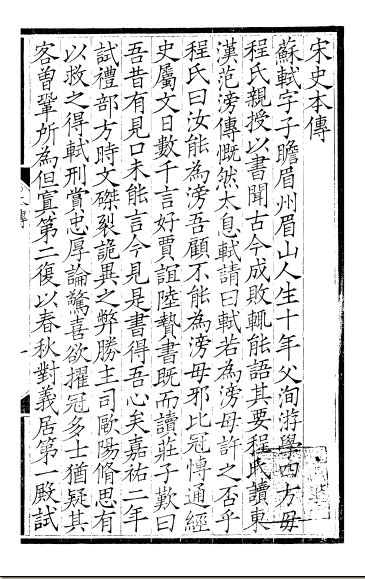 宋史本傳
蘇軾字子瞻眉州眉山人生十年父洵游學四方毋
程氏親授以書聞古今成敗輒能語其要程氏讀東
漢范滂傳慨然太息軾請曰軾若為滂毋許之否乎
程氏曰汝能為滂吾顧不能為滂毋邪比冠愽通經
史屬文日數千言好賈誼陸贄書既而讀莊子歎曰
吾昔有見口未能言今見是書得吾心矣嘉祐二年
試禮部方時文磔裂詭異之弊勝主司歐陽脩思有
以救之得軾刑賞忠厚論驚喜欲擢冠多士猶疑其
客曾鞏所為但寘第二復以春秋對義居第一殿試